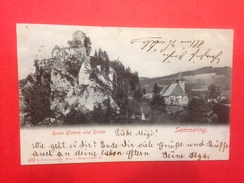 Ruine Klamm und Kirche
Semmering.
Liebe Mizi!
Wie geht es dir? Sende dir viele Grüße und Küsse
auch an deine lieben Eltern
Deine Olga.